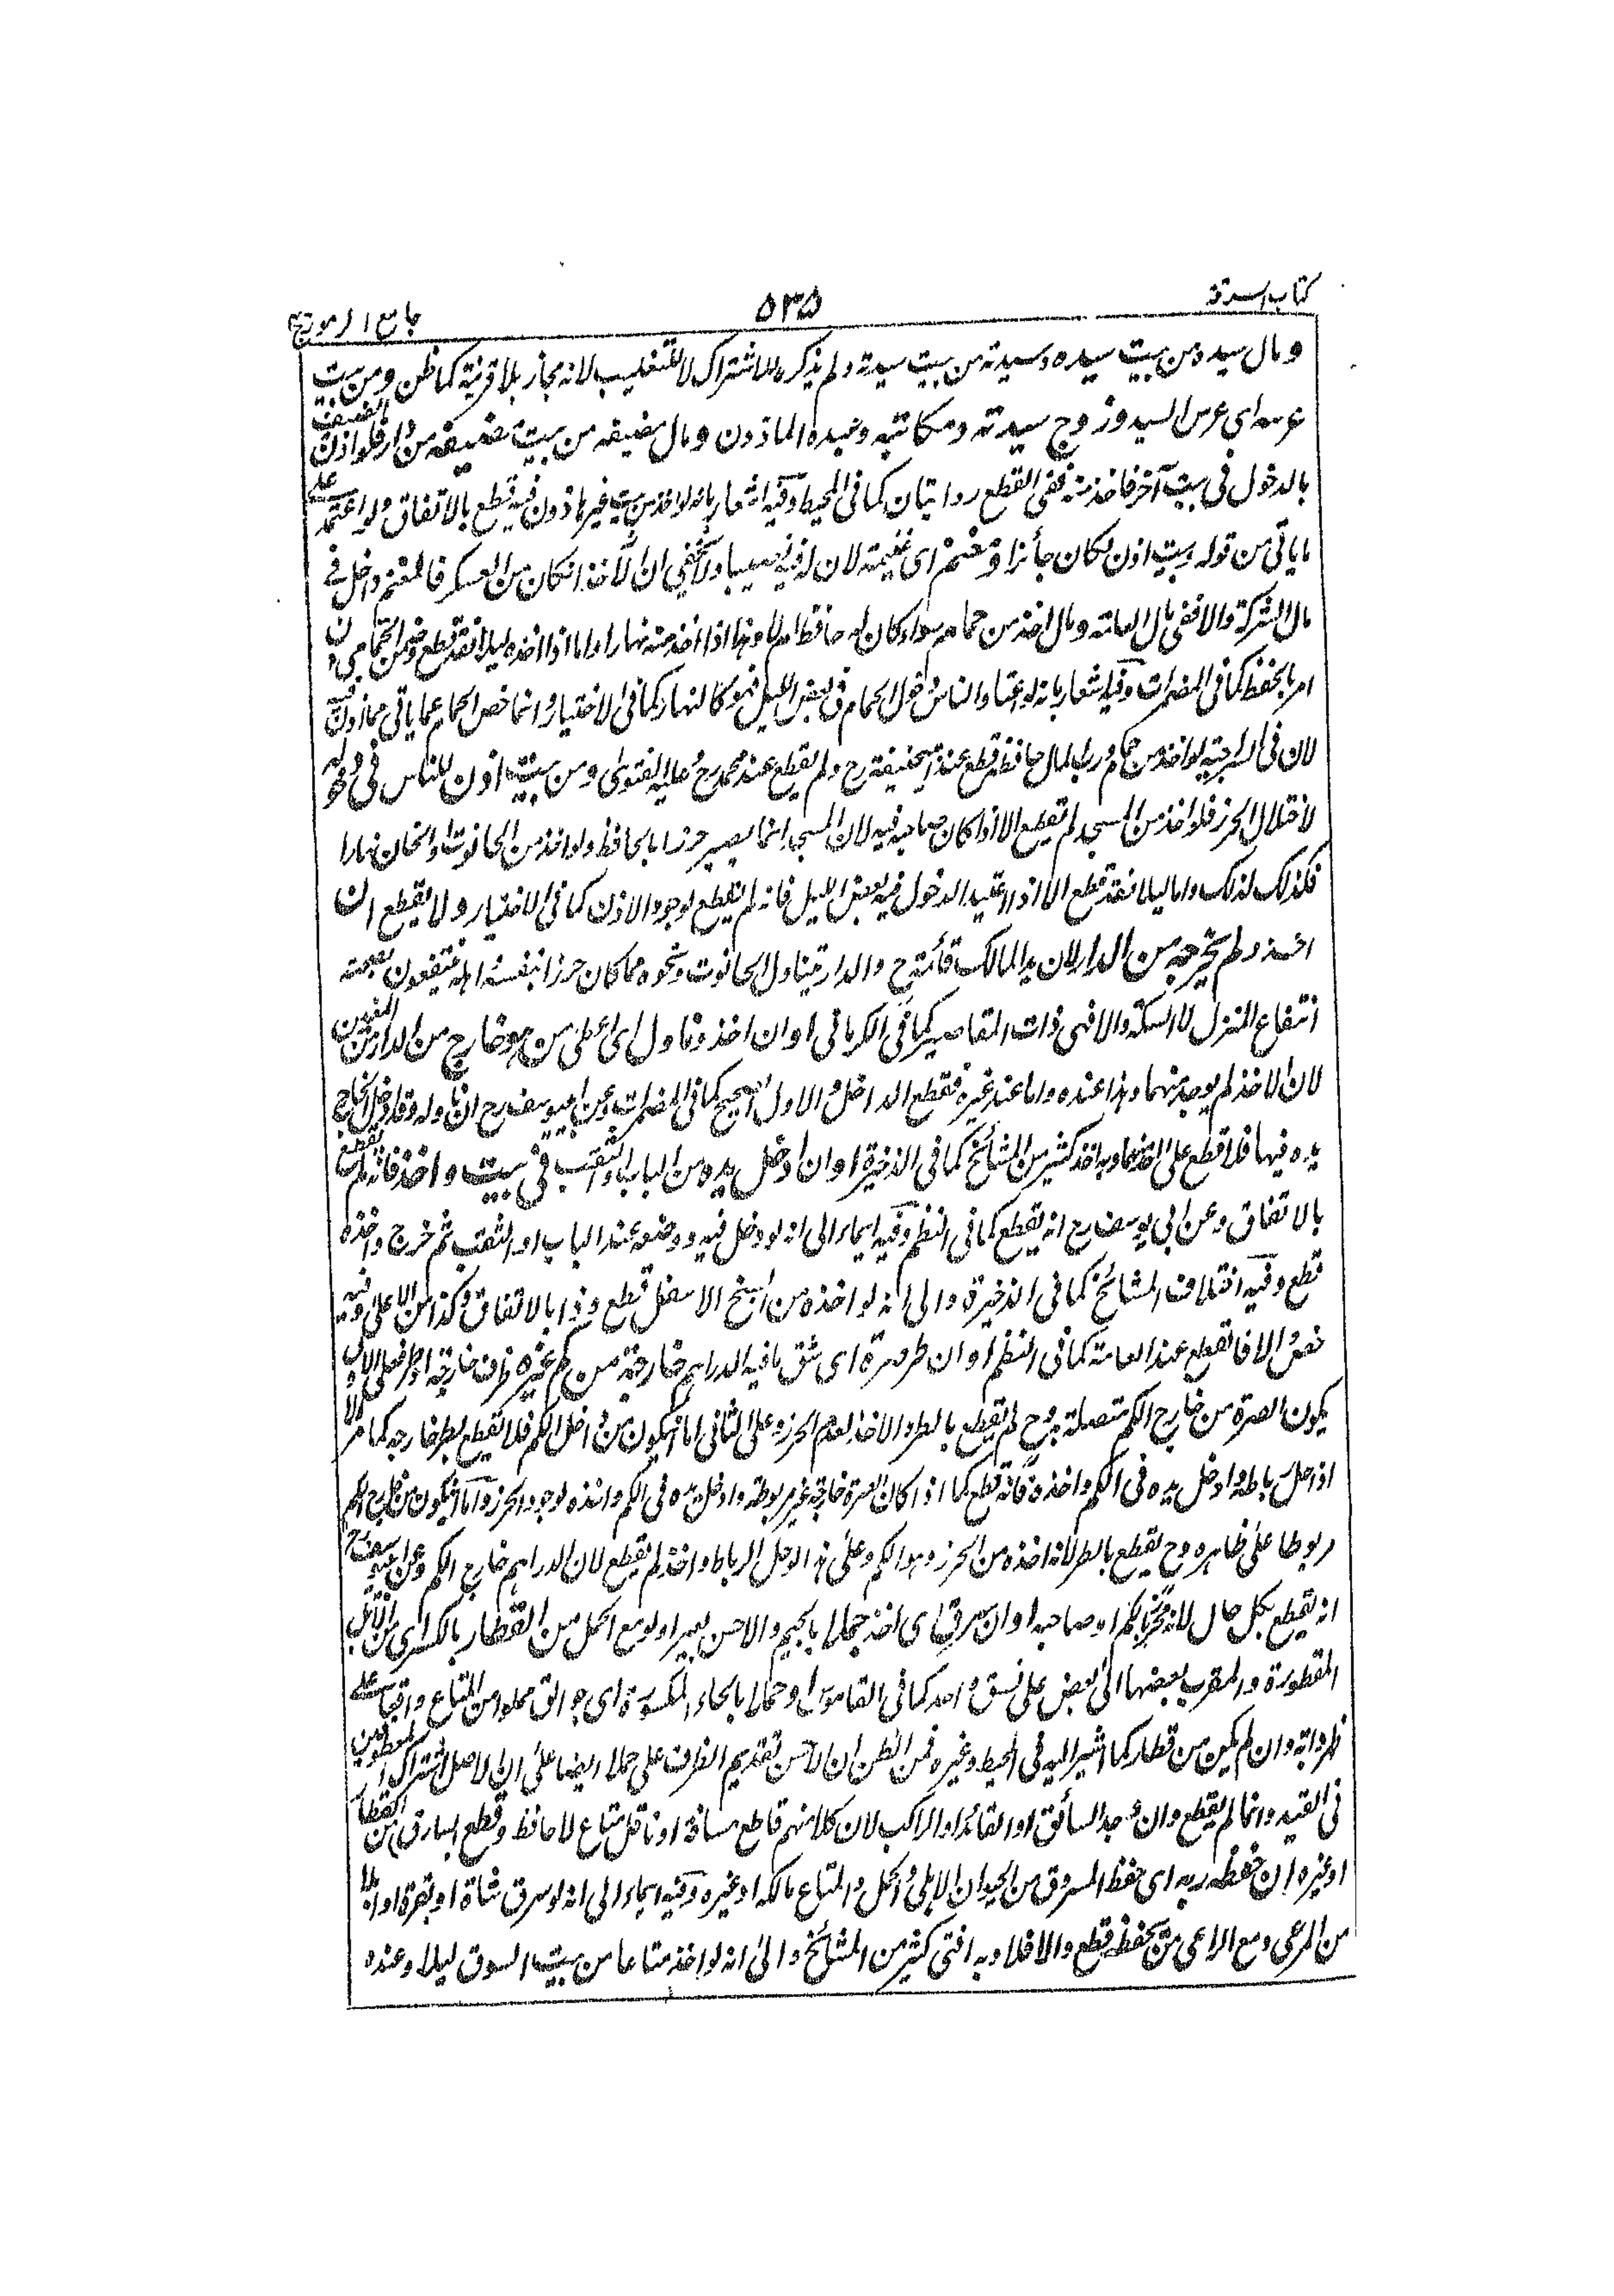 كتاب السرقة
٥٣٥
جامع الرموز ج
ومال سيده من بيت سيده وسيدته من بيت سيدته ولم يذكره للاشتراك لا للتغليب لانه مجاز بلا قرينة كما ظن ومن بيت
عرسه اى عرس السيد وزوج سيدته ومكاتبه وعبده الماذون ومال مضيفه من بيت مضيفه من دار فلو اذن المضيف
بالدخول فى بيت آخر فاخذ منه ففى القطع روايتان كما فى المحيط وفيه اشعار بانه لو اخذ من بيت غير ماذون فيه قطع بالاتفاق ولو اعتمد على
ما ياتى من قوله بيت اذن لكان جائزا ومغنم اى غنيمة لان له فيه نصيبا ولا يخفى ان الآخذ انكان من العسكر فالمغنم داخل فى
مال الشركة والا ففى مال العامة ومال اخذ من حمام سواء كان له حافظ ام لا وهذا اذا اخذ منه نهارا واما اذا اخذه ليلا فقد قطع
امر بالحفظ كما فى المضمرات وفيه اشعار بانه لو اعتاد الناس دخول الحمام فى بعض الليل فهو كالنهار كما فى الاختيار وانما خص الحمام عما ياتى مما اذن فيه
لان فى السراجية لو اخذ من حمام ورب المال حافظه قطع عند ابيحنيفة رح ولم يقطع عند محمد رح وعليه الفتوى ومن بيت اذن للناس فى دخوله
لاختلال الحرز فلو اخذ من المسجد لم يقطع الا اذا كان صاحبه فيه لان المسجد انما يصير حرزا بالحافظ ولو اخذ من الحانوت او الخان نهارا
فكذلك لذلك واما ليلا فقد قطع الا اذا اعتيد الدخول فيه بعض الليل فانه لم يقطع لوجود الاذن كما فى الاختيار ولا يقطع ان
اخذ ولم يخرجه من الدار لان يد المالك قائمة ح والدار يتناول الحانوت ونحوه مما كان حرزا بنفسه اهله ينتفعون بصحنه
انتفاع المنزل لا السكة والا فهى ذات المقاصير كما فى الكرمانى او ان اخذ وناول اى اعطى من هو خارج من الدار من
لان الاخذ لم يوجد منهما وهذا عنده واما عند غيره فقطع الداخل والاول الصحيح كما فى المضمرات وعن ابيوسف رح ان ناوله وقد ادخل الخارج
يده فيها فلا قطع على الخارج وبه اخذ كثير من المشائخ كما فى الذخيرة او ان ادخل يده من الباب او النقب فى بيت واخذ فانه لم يقطع
بالاتفاق وعن ابى يوسف رح انه يقطع كما فى النظم وفيه ايماء الى انه لو دخل فيه ووضعه عند الباب او النقب ثم خرج واخذه
قطع وفيه اختلاف المشائخ كما فى الذخيرة والى انه لو اخذه من السفل قطع وذا بالاتفاق وكذا من الاعلى وفيه
والا فانقطع عند العامة كما فى النظم او ان طر صرة اى شق ما فيه الدراهم خارجة من كم غيره ظرف خارجة او طر فعلى الاول
يكون الصرة من خارج الكم متصلة به وح لم يقطع بالطر والاخذ لعدم الحرز وعلى الثانى اما ان يكون من داخل الكم فلا يقطع بطر خارجه كما مر الا
اذا حل رباطه وادخل يده فى الكم واخذه فانه قطع كما اذا كان الصرة خارجة غير مربوطة وادخل يده فى الكم واخذه لوجود الحرز واما ان يكون من خارج الكم
مربوطا على ظاهره وح يقطع بالطر لانه اخذه من الحرز وهو الكم وعلى هذا لو حل الرباط واخذ لم يقطع لان الدراهم خارج الكم وعن ابى يوسف رح
انه يقطع بكل حال لانه محرز بالكم او صاحبه او ان سرق اى اخذ جملا بالجيم والاحسن بعيرا ولو مع الحمل من القطار بالكسر اى من الابل
المقطورة والمقرب بعضها الى بعض على نسق واحد كما فى القاموس او حملا بالحاء المكسورة اى جوالق مملوا من المتاع واقعا على
ظهر دابة وان لم يكن من قطار كما اشير اليه فى المحيط وغيره فمن الظن ان الاحسن تقديم الظرف على حملا ايضا على ان الاصل اشتراك المعطوفين
فى القيد وانما لم يقطع وان وجد السائق او القائد او الراكب لان كلا منهم قاطع مسافة او ناقل متاع لا حافظ وقطع السارق من القطار
او غيره ان حفظه ربه اى حفظ المسروق من الحيوان الابل والحمل والمتاع مالكه او غيره وفيه ايماء الى انه لو سرق شاة او بقرة او ابلا
من المرعى ومع الراعى من يحفظه قطع والا فلا وبه افتى كثير من المشائخ والى انه لو اخذ متاعا من بيت السوق ليلا وعنده